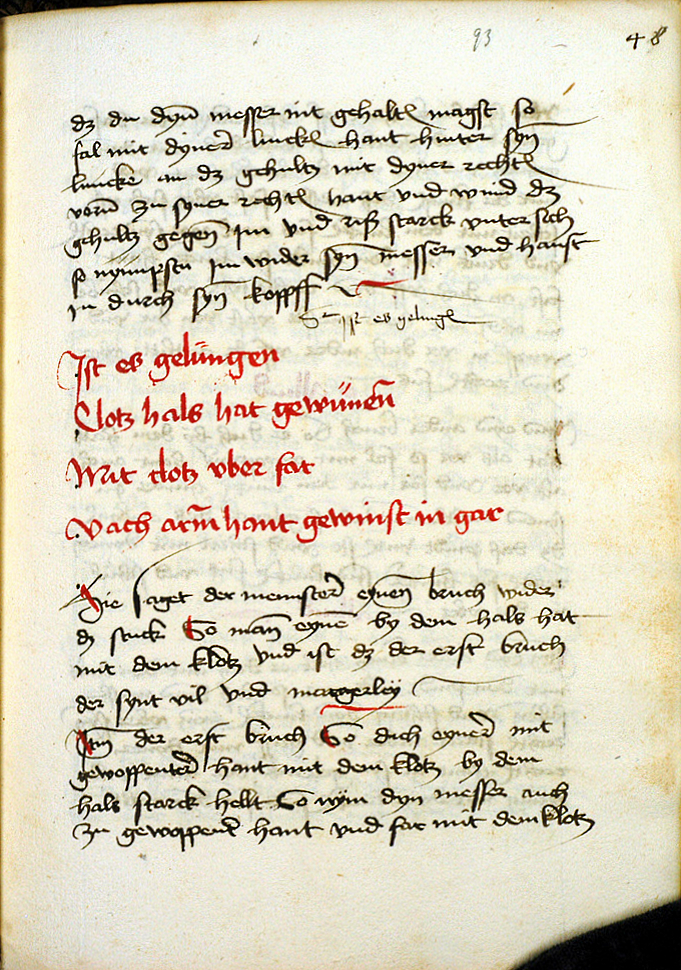 93
48
dz du dyn̄ messer nit gehaltē magst so
fal mit dyner linckē hant hinter syn̄
lincke an dz gehultz mit dyner rechtē
vorn̄ zu syner rechtē hant vnd wind dz
gehultz gegen im vnd riß starck vnter sich
so nympstu im wider syn̄ messer vnd haust
in durch syn̄ kopff
Ist es gelūgē
Ist es gelüngen
Clotz hals hat gewünen̄
Mit clotz vber far
Nach arm̄ hant gewinst in gar
Hie saget der meinster eynen bruch wider
dz stuck So man eynē by dem hals hat
mit dem klotz vnd ist dz der erst bruch
der synt vil vnd mangerley
Itm̄ der erst bruch So dich eyner mit
gewoppenter hant mit dem klotz by dem
hals starck hellt So nÿm dyn messer auch
zu gewoppent hant vnd far mit dem klotz